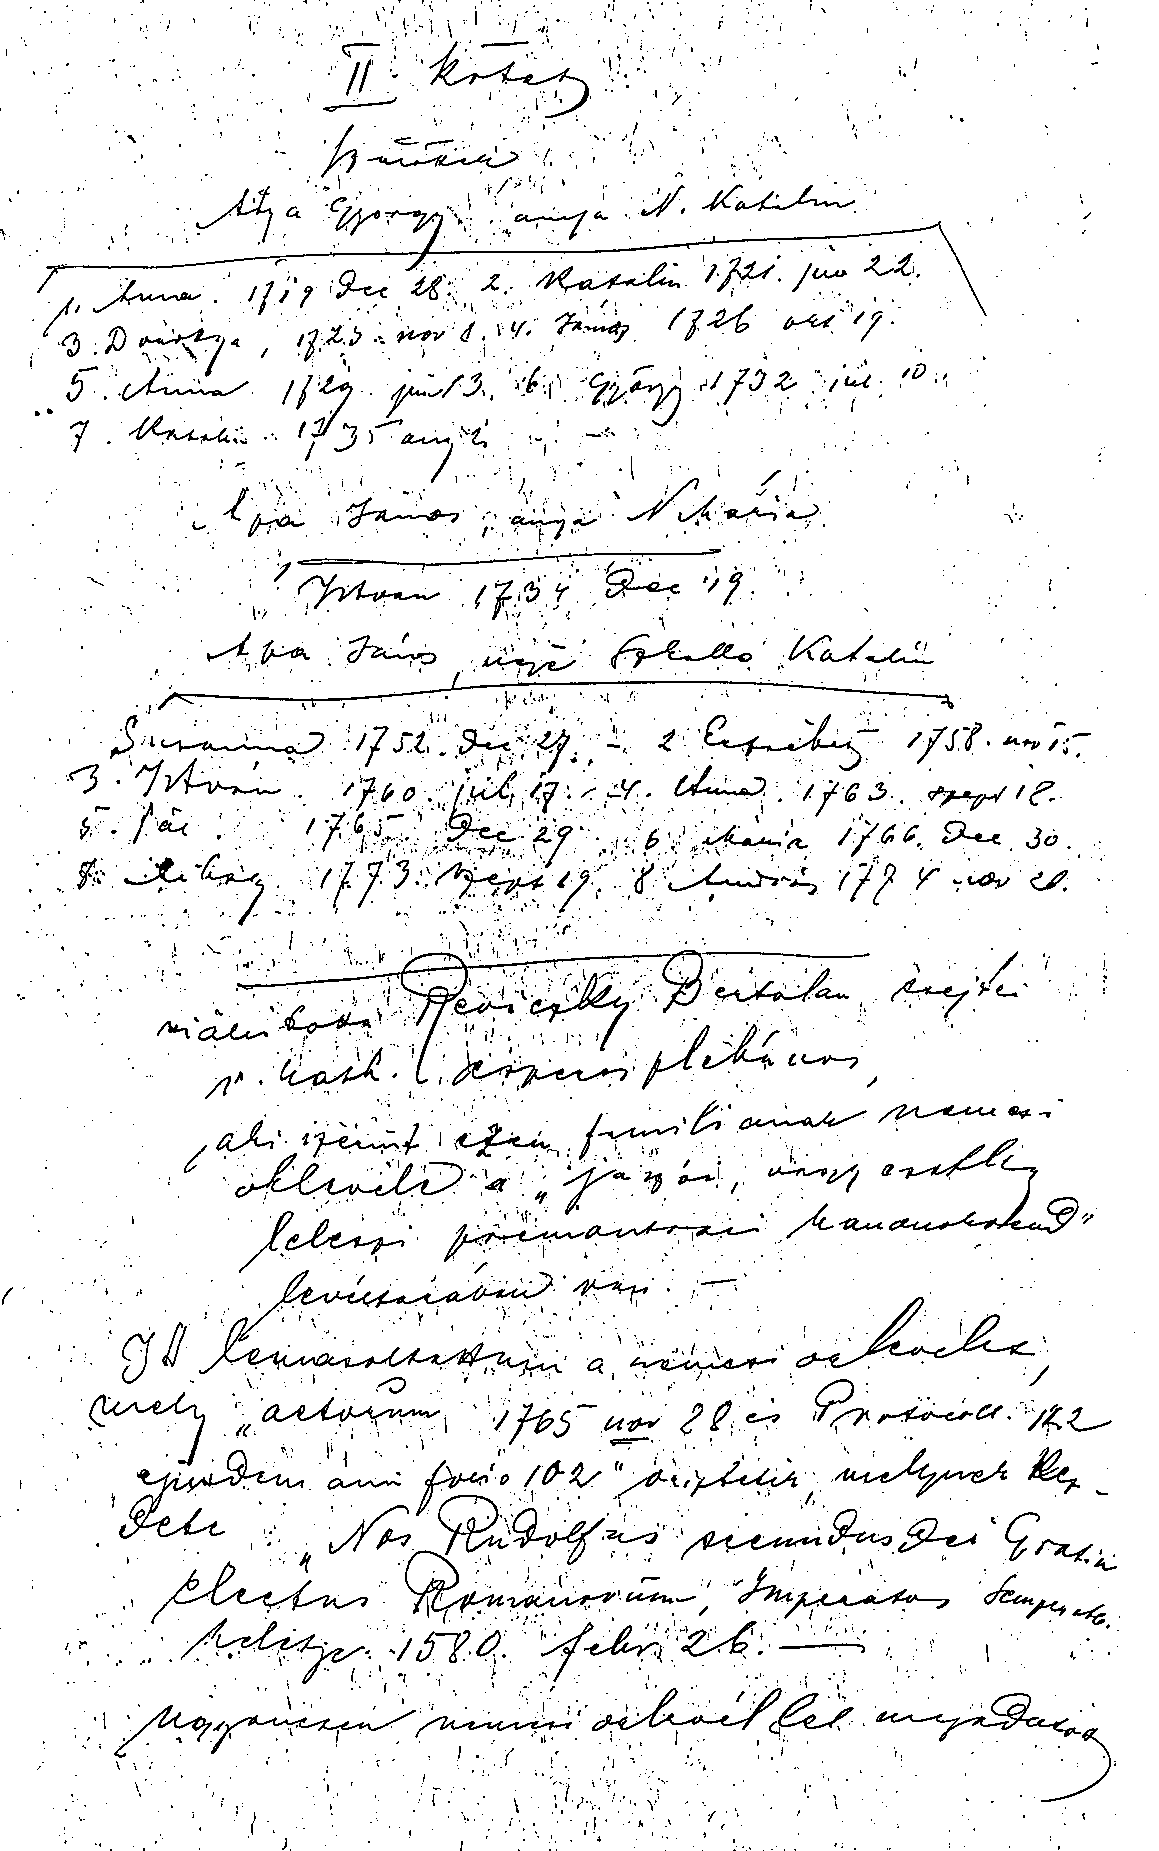 II. kötet
szülőtek
Atya György anya N. Katalin
1. Anna. 1719 Dec 28. 2. Katalin 1721. jun 22.
3. Dorottya, 1723 nov 8. 4. János 1726 okt 19.
5. Anna 1729 jun 13. 6. György 1732 jul. 10.
7. Katalin 1735 aug
Apa János, anya N Mária
István 1734 Dec 19.
Apa János, neje Katalin
Susanna 1752. Dec 27. – 2 Ersébet 1758. nov 15.
3. István. 1760. jul. 17. – 4. Anna. 1763. szept 18.
5. Pál. 1765 Dec 29 6 Maria 1766. Dec. 30.
Mihály 1773. szept 19. 8 András 1774 nov 28.
Reviczky Bertalan csejtei
r. kath. esperes plébános,
aki szerint ezen familianak nemesi
oklevele a „jaszói, vagy esetleg
leleszi premontrei kanonokrend"
levéltarában van. –
Itt lemásoltattam a nemesi oklevelet,
mely „actorum 1765 nov 28 és Protocoll. 172
ejusdem anni folio 102" őriztetik, melynek kez-
dete „Nos Rudolfus secundus Dei Gratia
Electus Romanorum, Imperator Semper stb.
kelitze. 1580. febr. 26. —
Ugyanezen nemesi oklevél